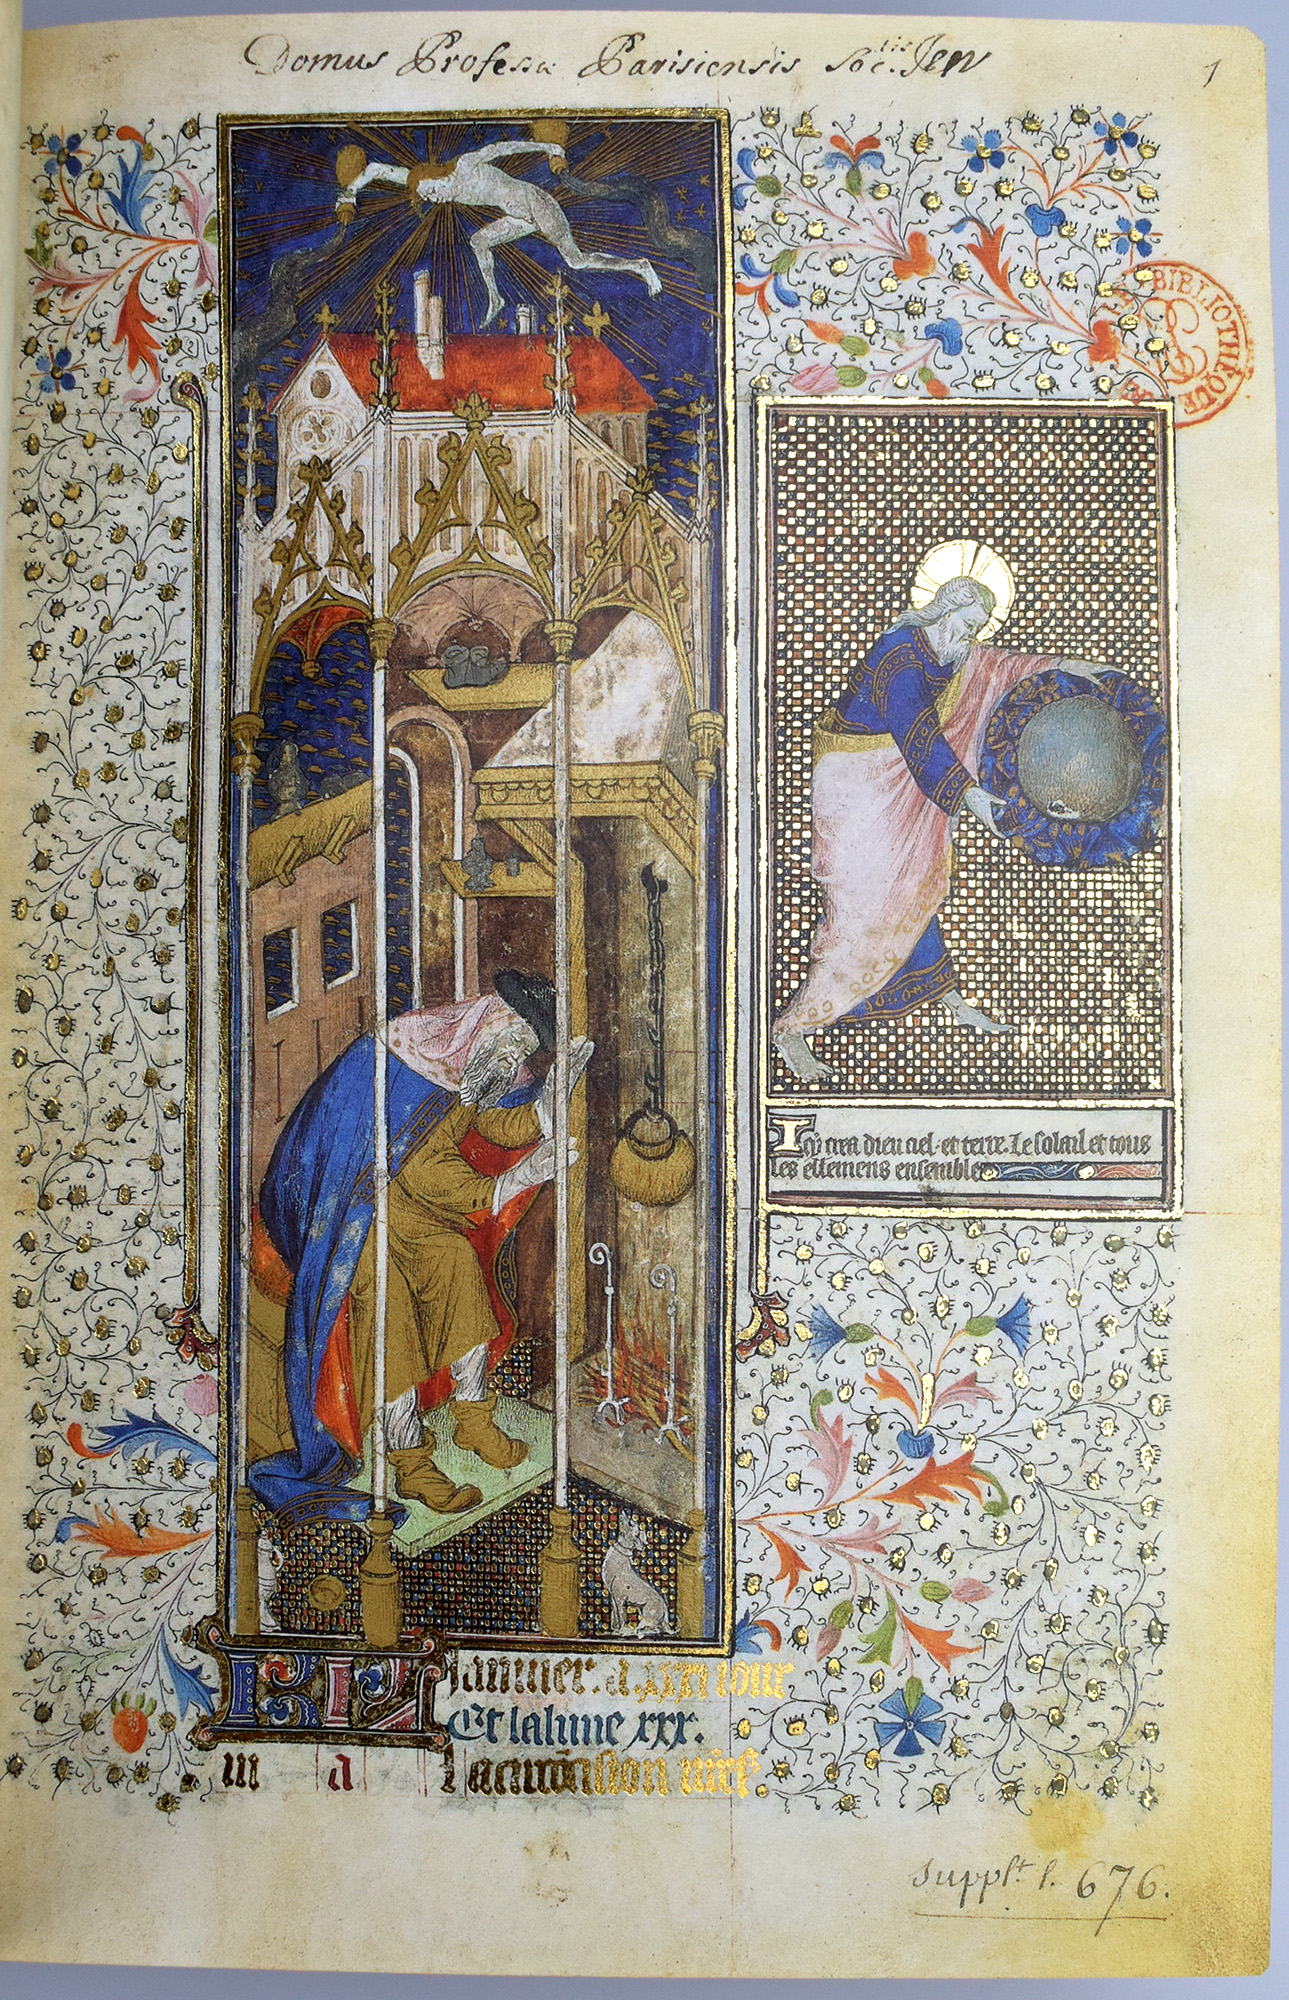 Domus Professæ Parisiensis Soc.tis Jesu
1
BIBLIOTHÈQUE
Icy crea dieu ciel et terre. Le soleil et tous
les ellemens ensemble
KL Ianuier. a. xxxi iour
Et la lune xxx.
iii a La circōcision nr̄e sʳ.
Suppl.t l. 676.